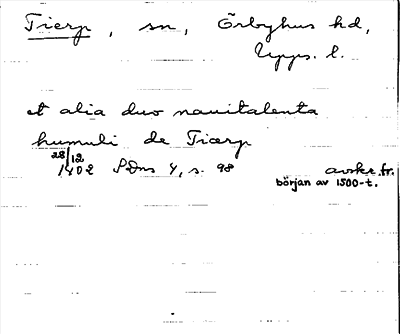 Tierp, sn, Örbyhus hd,
Upps. l.
et alia duo nauitalenta
humuli de Ticerp
28/12
1402 SDns 4, s. 98 avskr. fr.
början av 1500-t.